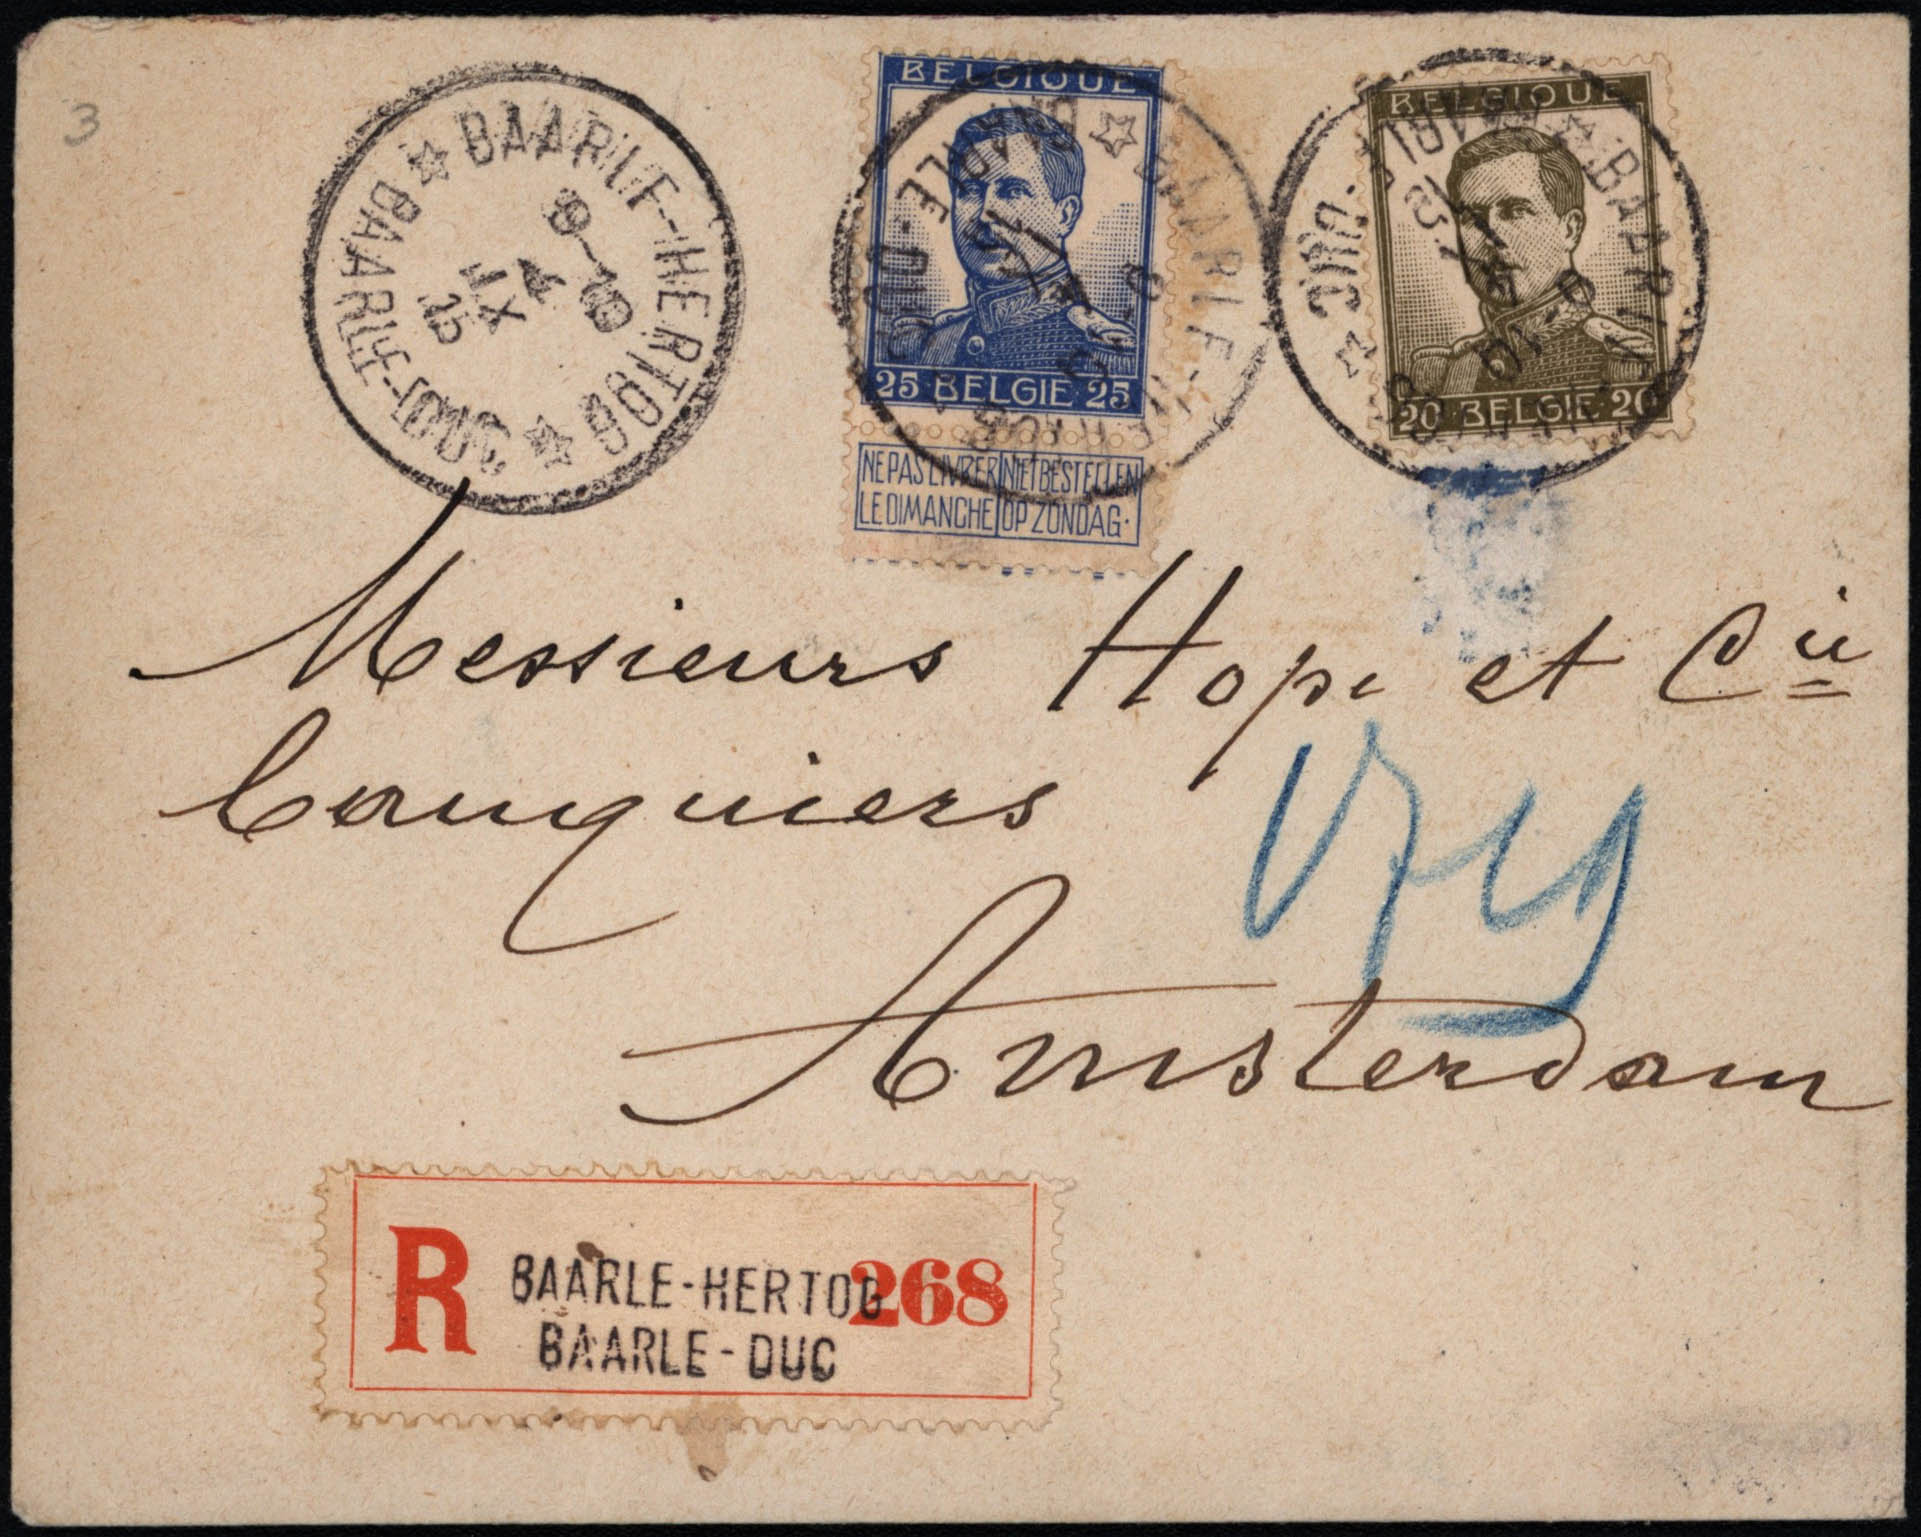 3
BAARLE-HERTOG
BAARLE-DUC
8-19
4
IX
15
BELGIQUE
25 BELGIE 25
NE PAS LIVRER LE DIMANCHE
NIET BESTELLEN OP ZONDAG.
BAARLE-HERTOG
BAARLE-DUC
BELGIQUE
20 BELGIE 20
Messieurs Hope et Cie
banquiers
Amsterdam
R
BAARLE-HERTOG
BAARLE-DUC
268